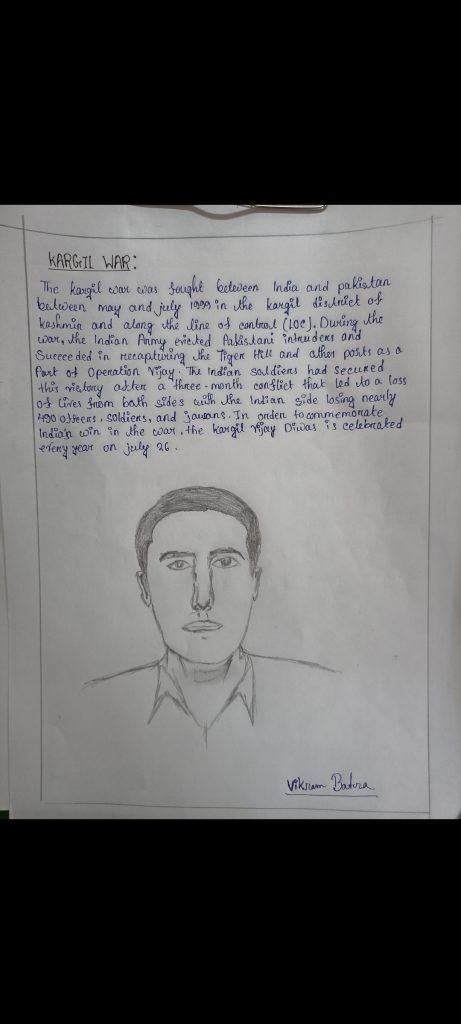 KARGIL WAR:
The kargil war was fought between India and pakistan
between may and july 1999 in the kargil district of
kashmir and along the line of control (LOC). During the
war, the Indian Army evicted Pakistani intruders and
Succeeded in recapturing the Tiger Hill and other posts as a
Part of Operation Vijay. The Indian soldiers had secured
this victory after a three-month conflict that led to a loss
of lives from both sides with the Indian side losing nearly
490 officers, soldiers, and jawans. In order to commemorate
Indian win in the war, the kargil Vijay Diwas is celebrated
every year on july 26.
Vikram Batra